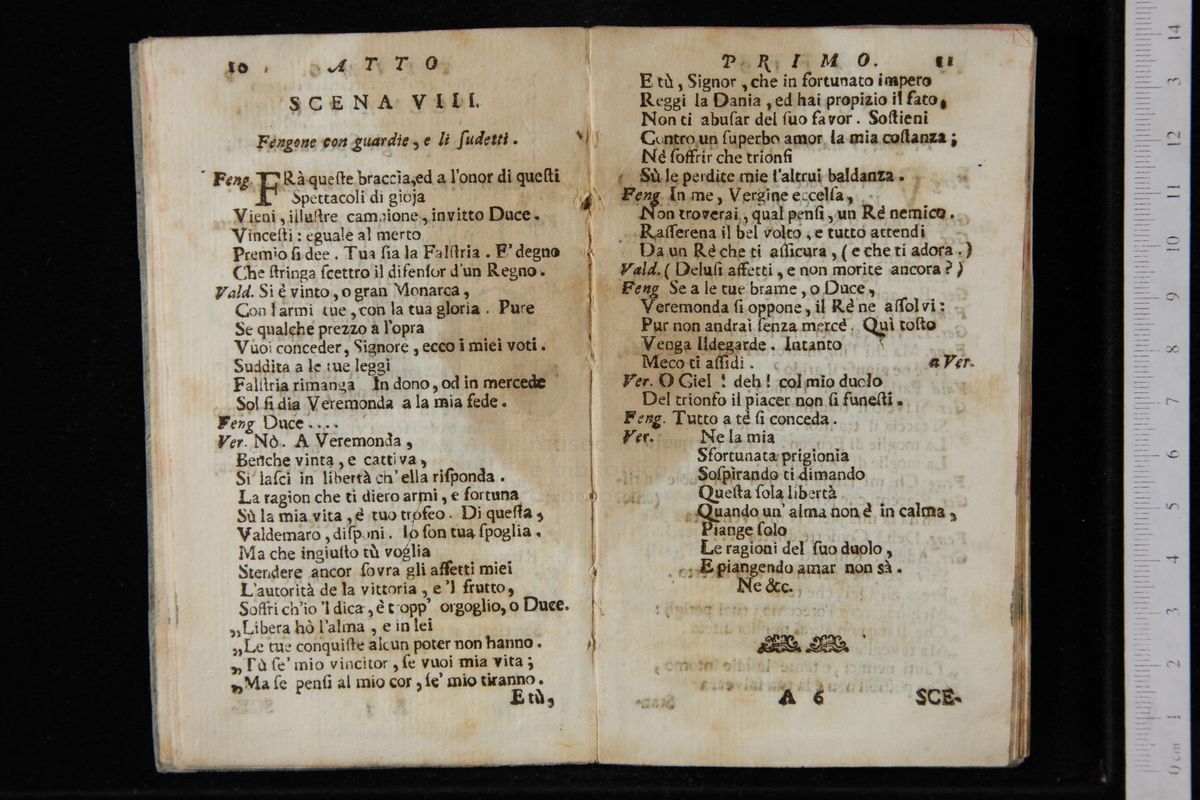 10 ATTO
SCENA VIII.
Fengone con guardie, e li ſudetti.
Feng. FRà queſte braccia, ed a l'onor di queſti
Spettacoli di gioja
Vieni, illuſtre campione, invitto Duce.
Vinceſti: eguale al merto
Premio ſi dee. Tua ſia la Falſtria. E' degno
Che ſtringa ſcettro il difenſor d'un Regno.
Vald. Si è vinto, o gran Monarca,
Con l'armi tue, con la tua gloria. Pure
Se qualche prezzo a l'opra
Vuoi conceder, Signore, ecco i miei voti.
Suddita a le tue leggi
Falſtria rimanga. In dono, od in mercede
Sol ſi dia Veremonda a la mia fede.
Feng Duce....
Ver. Nò. A Veremonda,
Benche vinta, e cattiva,
Si laſci in libertà ch'ella riſponda.
La ragion che ti diero armi, e fortuna
Sù la mia vita, è tuo trofeo. Di queſta,
Valdemaro, diſponi. Io ſon tua ſpoglia.
Ma che ingiuſto tù voglia
Stendere ancor ſovra gli affetti miei
L'autorità de la vittoria, e 'l frutto,
Soffri ch'io 'l dica, è tropp' orgoglio, o Duce.
„Libera hò l'alma, e in lei
„Le tue conquiſte alcun poter non hanno.
„Tù ſe' mio vincitor, ſe vuoi mia vita;
„Ma ſe penſi al mio cor, ſe' mio tiranno.
E tù,
PRIMO. 11
E tù, Signor, che in fortunato impero
Reggi la Dania, ed hai propizio il fato,
Non ti abuſar del ſuo favor. Soſtieni
Contro un ſuperbo amor la mia coſtanza;
Nè ſoffrir che trionfi
Sù le perdite mie l'altrui baldanza.
Feng. In me, Vergine eccelſa,
Non troverai, qual penſi, un Rè nemico.
Raſſerena il bel volto, e tutto attendi
Da un Rè che ti aſſicura, (e che ti adora.)
Vald. (Deluſi affetti, e non morite ancora?)
Feng Se a le tue brame, o Duce,
Veremonda ſi oppone, il Rè ne aſſolvi:
Pur non andrai ſenza mercè. Quì toſto
Venga Ildegarde. Intanto
Meco ti aſſidi. a Ver.
Ver. O Ciel! deh! col mio duolo
Del trionfo il piacer non ſi funeſti.
Feng. Tutto a tè ſi conceda.
Ver. Ne la mia
Sfortunata prigionia
Soſpirando ti dimando
Queſta ſola libertà
Quando un' alma non è in calma,
Piange ſolo
Le ragioni del ſuo duolo,
E piangendo amar non sà.
Ne &c.
A 6 SCE-